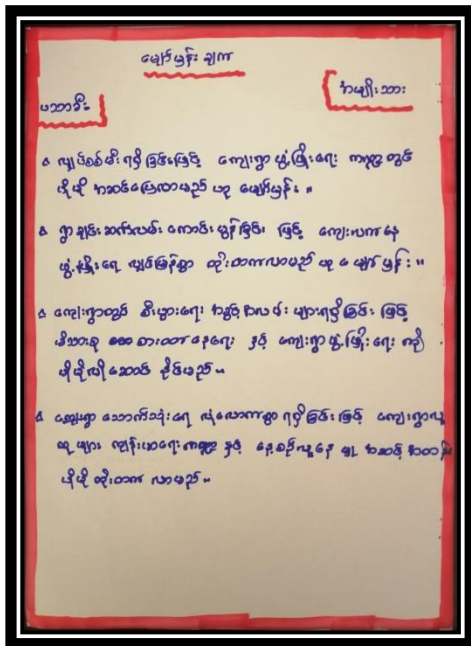 မျှော်မှန်းချက်
ပထာခီး
အမျိုးသား
လျှပ်စစ်မီးရရှိခြင်းဖြင့် ကျေးရွာဖွံ့ဖြိုးရေး ကဏ္ဍတွင်
ပိုမိုအဆင်ပြေလာမည်ဟု မျှော်မှန်း။
ရွာချင်းဆက်လမ်းကောင်းမွန်ခြင်းဖြင့် ကျေးလက်နေ
ဖွံ့ဖြိုးရေ လျှင်မြန်စွာ တိုးတက်လာမည်ဟု မျှော်မှန်း။
ကျေးရွာတွင် စီးပွားရေး အခွင့်အလမ်းများရရှိခြင်းဖြင့်
မိသားစု စားဝတ်နေရေး နှင့် ကျေးရွာဖွံ့ဖြိုးရေး ကို
ပိုမိုလုပ်ဆောင်နိုင်မည်။
ကျေးရွာ သောက်သုံးရေ လုံလောက်စွာရရှိခြင်းဖြင့် ကျေးရွာလူ
ထုများ ကျန်းမာရေးကဏ္ဍ နှင့် နေ့စဉ်လူနေမှု အဆင့်အတန်း
ပိုမိုတိုးတက်လာမည်။